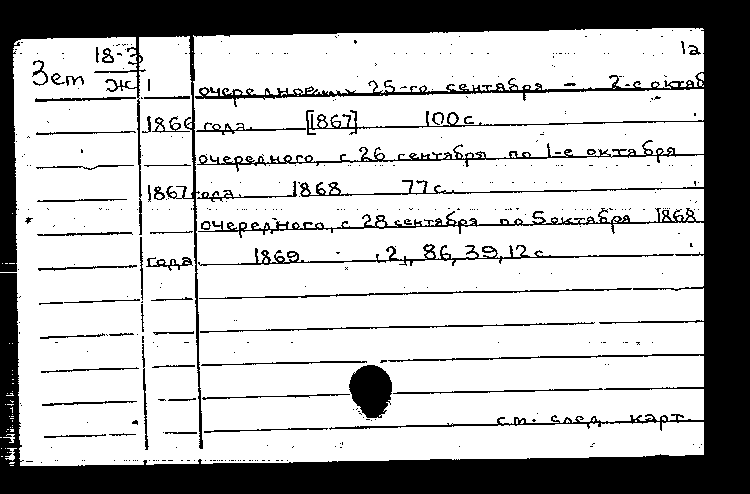 1а
Зет 18-3
Ж 1 очередного 25-го сентября - 2-е октяб
1866 года. [1867] 100 с.
очередного, с 26 сентября по 1-е октября
1867 года. 1868 77 с.
очередного, с 28 сентября по 5 октября 1868
года 1869. 2, 86, 39, 12 с.
см. след. карт.